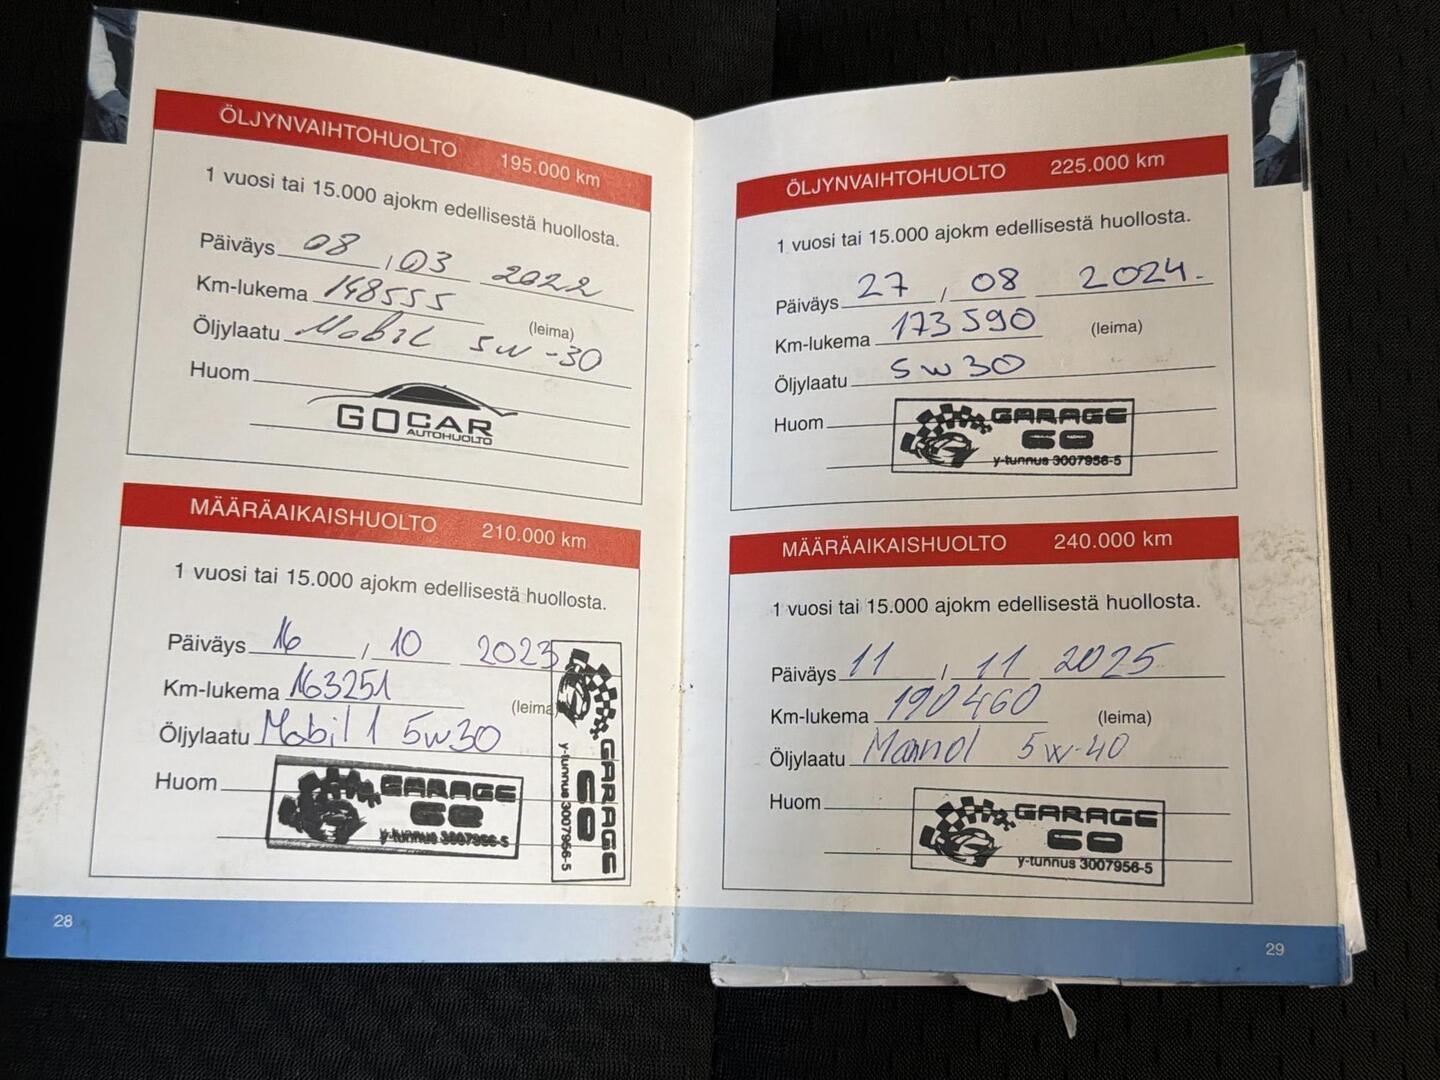 ÖLJYNVAIHTOHUOLTO 195.000 km
1 vuosi tai 15.000 ajokm edellisestä huollosta.
Päiväys 08 , 03 2022
Km-lukema 148555
(leima)
Öljylaatu Mobil 5w-30
Huom
GOCAR
AUTOHUOLTO
MÄÄRÄAIKAISHUOLTO 210.000 km
1 vuosi tai 15.000 ajokm edellisestä huollosta.
Päiväys 16 , 10 2023
Km-lukema 163251
(leima
Öljylaatu Mobil 1 5w30
Huom
GARAGE
60
y-tunnus 3007956-5
GARAGE
60
y-tunnus 3007956-5
28
ÖLJYNVAIHTOHUOLTO 225.000 km
1 vuosi tai 15.000 ajokm edellisestä huollosta.
Päiväys 27 , 08 2024.
Km-lukema 173590 (leima)
Öljylaatu 5w30
Huom
GARAGE
60
y-tunnus 3007956-5
MÄÄRÄAIKAISHUOLTO 240.000 km
1 vuosi tai 15.000 ajokm edellisestä huollosta.
Päiväys 11 , 11 2025
Km-lukema 190460 (leima)
Öljylaatu 5w-40
Huom
GARAGE
60
y-tunnus 3007956-5
29